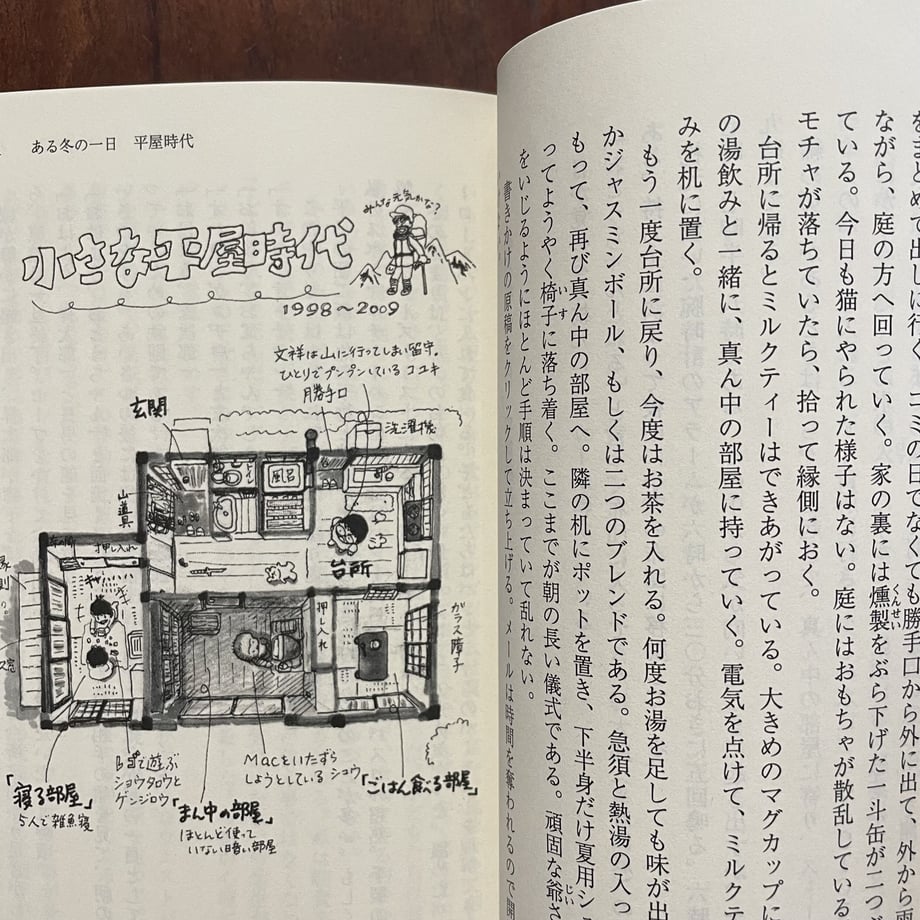 をまとめて出しに行く。ゴミの日でなくても勝手口から外に出て、
ながら、庭の方へ回っていく。家の裏には燻製をぶら下げた一斗缶が二つぶ
ている。今日も猫にやられた様子はない。庭にはおもちゃが散乱している
モチャが落ちていたら、拾って縁側におく。
台所に帰るとミルクティーはできあがっている。大きめのマグカップに
の湯飲みと一緒に、真ん中の部屋に持っていく。電気を点けて、ミルクテ
みを机に置く。
もう一度台所に戻り、今度はお茶を入れる。何度お湯を足しても味が出
かジャスミンボール、もしくは二つのブレンドである。急須と熱湯の入っ
もって、再び真ん中の部屋へ。隣の机にポットを置き、下半身だけ夏用シ
ってようやく椅子に落ち着く。ここまでが朝の長い儀式である。頑固な爺さ
をいじるようにほとんど手順は決まっていて乱れない。
書きかけの原稿をクリックして立ち上げる。メールは時間を奪われるので開
ある冬の一日 平屋時代
みんな元気かな?
小さな平屋時代
1998〜2009
文祥は山に行ってしまい留守。
ひとりでプンプンしているコユキ
勝手口
玄関
洗濯機
風呂
山道具
押し入れ
台所
押し入れ
ガラス障子
「寝る部屋」
5人で雑魚寝
で遊ぶ
ショウタロウと
ゲンジロウ
「まん中の部屋」
ほとんど使って
いない暗い部屋
Macをいたずら
しようとしている ショウ
「ごはん食べる部屋」